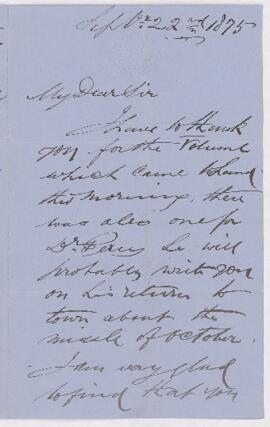 Septbr 22nd 1875
My Dear Sir
I have to thank
you for the Volume
which came to hand
this morning, there
was also one for
Dr. he will
probably write you
on his return to
town about the
middle of October.
I am very glad
to find that you